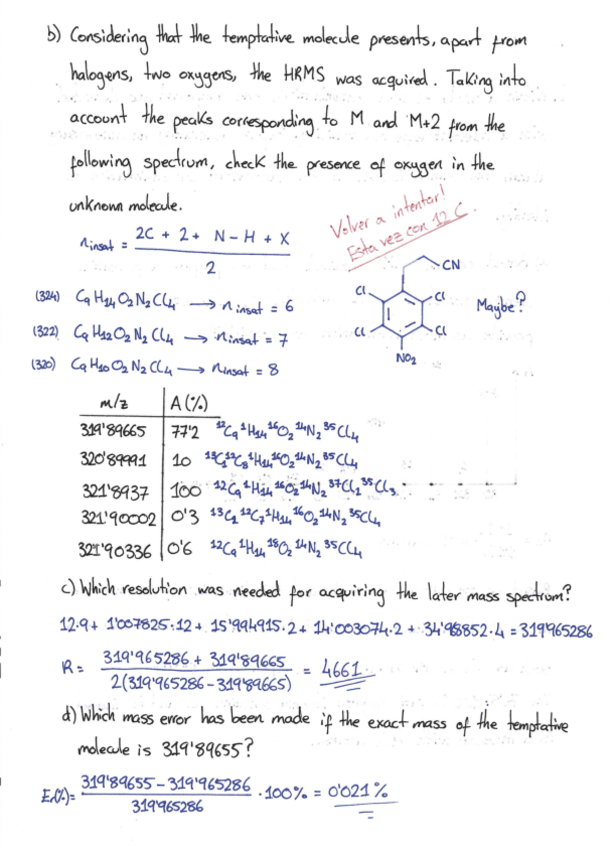 b) Considering that the temptative molecule presents, apart from
halogens, two oxygens, the HRMS was acquired. Taking into
account the peaks corresponding to M and M+2 from the
following spectrum, check the presence of oxygen in the
unknown molecule.
Volver a intentar!
Esta vez con 12 C.
n insat = (2C + 2 + N - H + X) / 2
CN
Cl
Cl
Cl
Cl
NO₂
Maybe?
(324) C₉H₁₄O₂N₂Cl₄ → n insat = 6
(322) C₉H₁₂O₂N₂Cl₄ → n insat = 7
(320) C₉H₁₀O₂N₂Cl₄ → n insat = 8
m/z A (%)
319'89665 77'2 ¹²C₉¹H₁₄¹⁶O₂¹⁴N₂³⁵Cl₄
320'89991 10 ¹³C₁¹²C₈¹H₁₄¹⁶O₂¹⁴N₂³⁵Cl₄
321'8937 100 ¹²C₉¹H₁₄¹⁶O₂¹⁴N₂³⁷Cl₂³⁵Cl₃
321'90002 0'3 ¹³C₂¹²C₇¹H₁₄¹⁶O₂¹⁴N₂³⁵Cl₄
321'90336 0'6 ¹²C₉¹H₁₄¹⁸O₂¹⁴N₂³⁵Cl₄
c) Which resolution was needed for acquiring the later mass spectrum?
12·9 + 1'007825·12 + 15'994915·2 + 14'003074·2 + 34'968852·4 = 319'965286
R = (319'965286 + 319'89665) / 2(319'965286 - 319'89665) = 4661
d) Which mass error has been made if the exact mass of the temptative
molecule is 319'89655?
Er(%) = (319'89655 - 319'965286) / 319'965286 · 100% = 0'021%